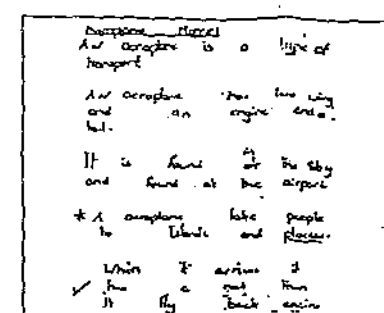 Aeroplane
An aeroplane is a type of
transport
An aeroplane has two wing
and an engine and a
tail.
It is found at the sky
and found at the airport
* A aeroplane take people
to Islands and places.
When it arrives it
has a rest then
it fly back again